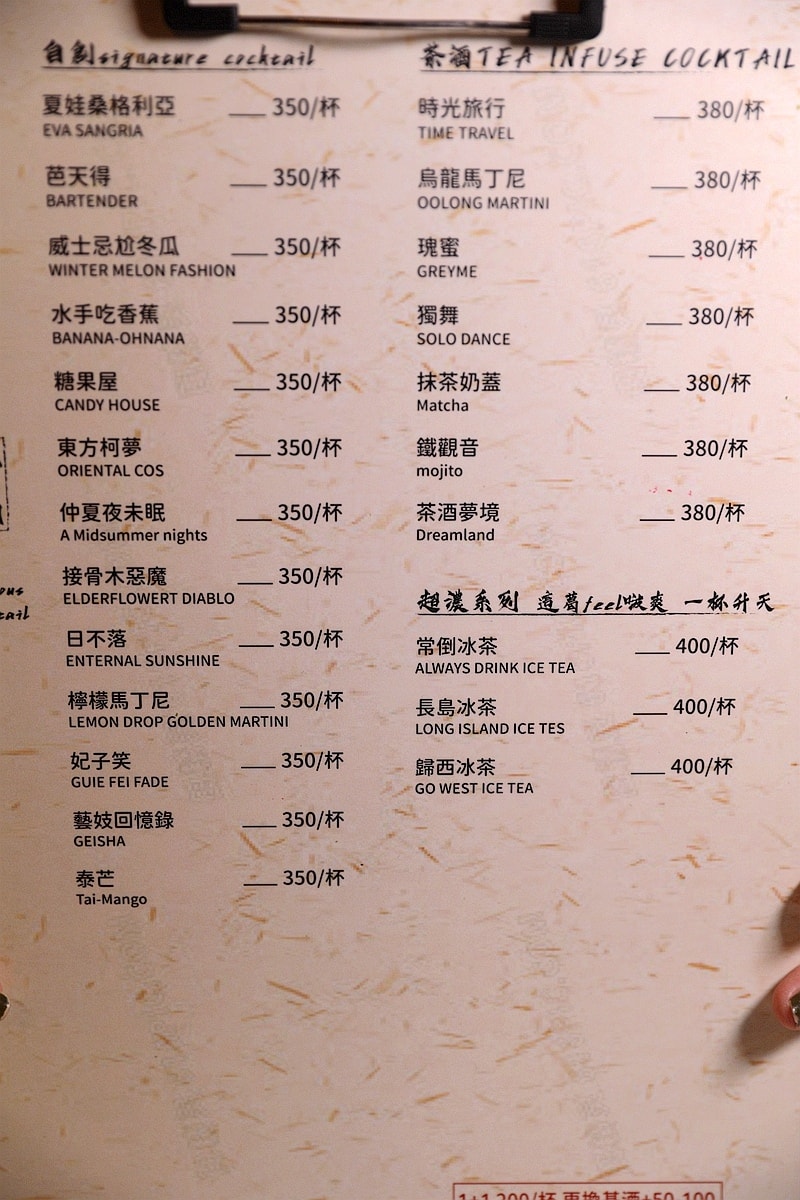 自創signature cocktail
夏娃桑格利亞 350/杯
EVA SANGRIA
芭天得 350/杯
BARTENDER
威士忌尬冬瓜 350/杯
WINTER MELON FASHION
水手吃香蕉 350/杯
BANANA-OHNANA
糖果屋 350/杯
CANDY HOUSE
東方柯夢 350/杯
ORIENTAL COS
仲夏夜未眠 350/杯
A Midsummer nights
接骨木惡魔 350/杯
ELDERFLOWERT DIABLO
日不落 350/杯
ENTERNAL SUNSHINE
檸檬馬丁尼 350/杯
LEMON DROP GOLDEN MARTINI
妃子笑 350/杯
GUIE FEI FADE
藝妓回憶錄 350/杯
GEISHA
泰芒 350/杯
Tai-Mango
茶酒TEA INFUSE COCKTAIL
時光旅行 380/杯
TIME TRAVEL
烏龍馬丁尼 380/杯
OOLONG MARTINI
瑰蜜 380/杯
GREYME
獨舞 380/杯
SOLO DANCE
抹茶奶蓋 380/杯
Matcha
鐵觀音 380/杯
mojito
茶酒夢境 380/杯
Dreamland
超濃系列 這葛feel啵爽 一杯升天
常倒冰茶 400/杯
ALWAYS DRINK ICE TEA
長島冰茶 400/杯
LONG ISLAND ICE TES
歸西冰茶 400/杯
GO WEST ICE TEA
1+1 200/杯 更換基酒+50-100